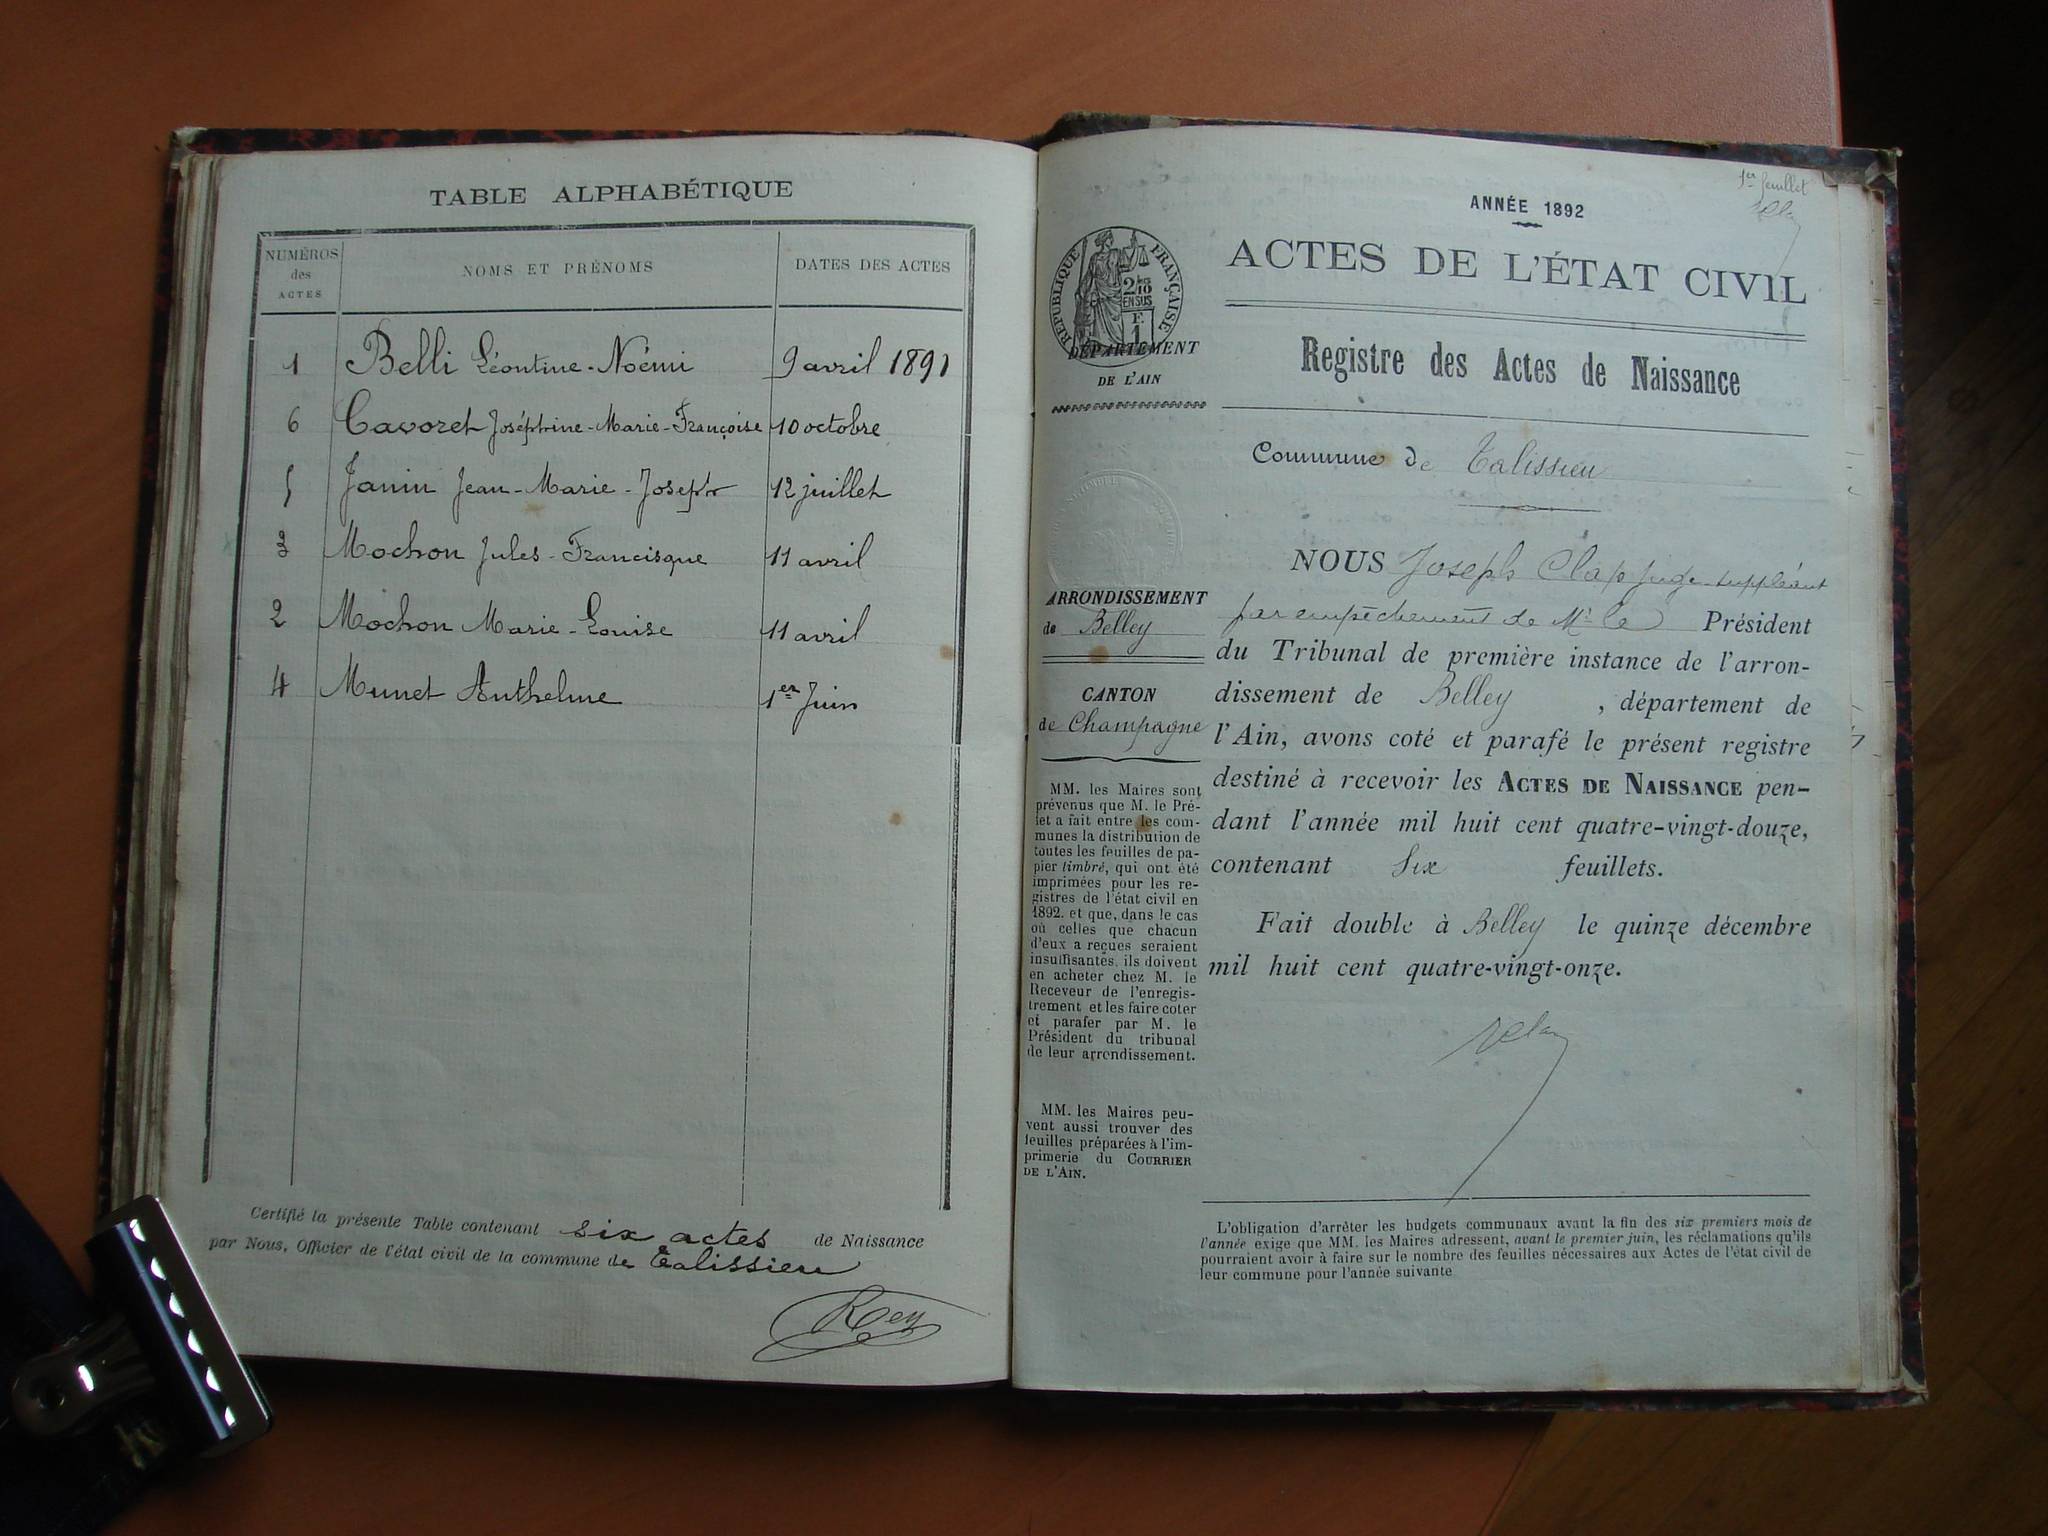 TABLE ALPHABÉTIQUE
NUMÉROS des ACTES NOMS ET PRÉNOMS DATES DES ACTES
1 Belli Léontine-Noémi 9 avril 1891
6 Cavoret Joséphine-Marie-Françoise 10 octobre
5 Janin Jean-Marie-Joseph 12 juillet
3 Mochon Jules-Francisque 11 avril
2 Mochon Marie-Louise 11 avril
4 Munet Anthelme 1er Juin
Certifié la présente Table contenant six actes de Naissance
par Nous, Officier de l'état civil de la commune de Talissieu
Rey
1er feuillet
ANNÉE 1892
ACTES DE L'ÉTAT CIVIL
RÉPUBLIQUE FRANÇAISE
2/10
EN SUS
F.
1
DÉPARTEMENT
DE L'AIN
Registre des Actes de Naissance
Commune de Talissieu
ARRONDISSEMENT
de Belley
CANTON
de Champagne
MM. les Maires sont
prévenus que M. le Pré-
fet a fait entre les com-
munes la distribution de
toutes les feuilles de pa-
pier timbré, qui ont été
imprimées pour les re-
gistres de l'état civil en
1892. et que, dans le cas
où celles que chacun
d'eux a reçues seraient
insuffisantes, ils doivent
en acheter chez M. le
Receveur de l'enregis-
trement et les faire coter
et parafer par M. le
Président du tribunal
de leur arrondissement.
MM. les Maires peu-
vent aussi trouver des
feuilles préparées à l'im-
primerie du COURRIER
DE L'AIN.
NOUS Joseph Clap juge suppléant
par empêchement de Mr le Président
du Tribunal de première instance de l'arron-
dissement de Belley, département de
l'Ain, avons coté et parafé le présent registre
destiné à recevoir les ACTES DE NAISSANCE pen-
dant l'année mil huit cent quatre-vingt-douze,
contenant Six feuillets.
Fait double à Belley le quinze décembre
mil huit cent quatre-vingt-onze.
L'obligation d'arrêter les budgets communaux avant la fin des six premiers mois de
l'année exige que MM. les Maires adressent, avant le premier juin, les réclamations qu'ils
pourraient avoir à faire sur le nombre des feuilles nécessaires aux Actes de l'état civil de
leur commune pour l'année suivante